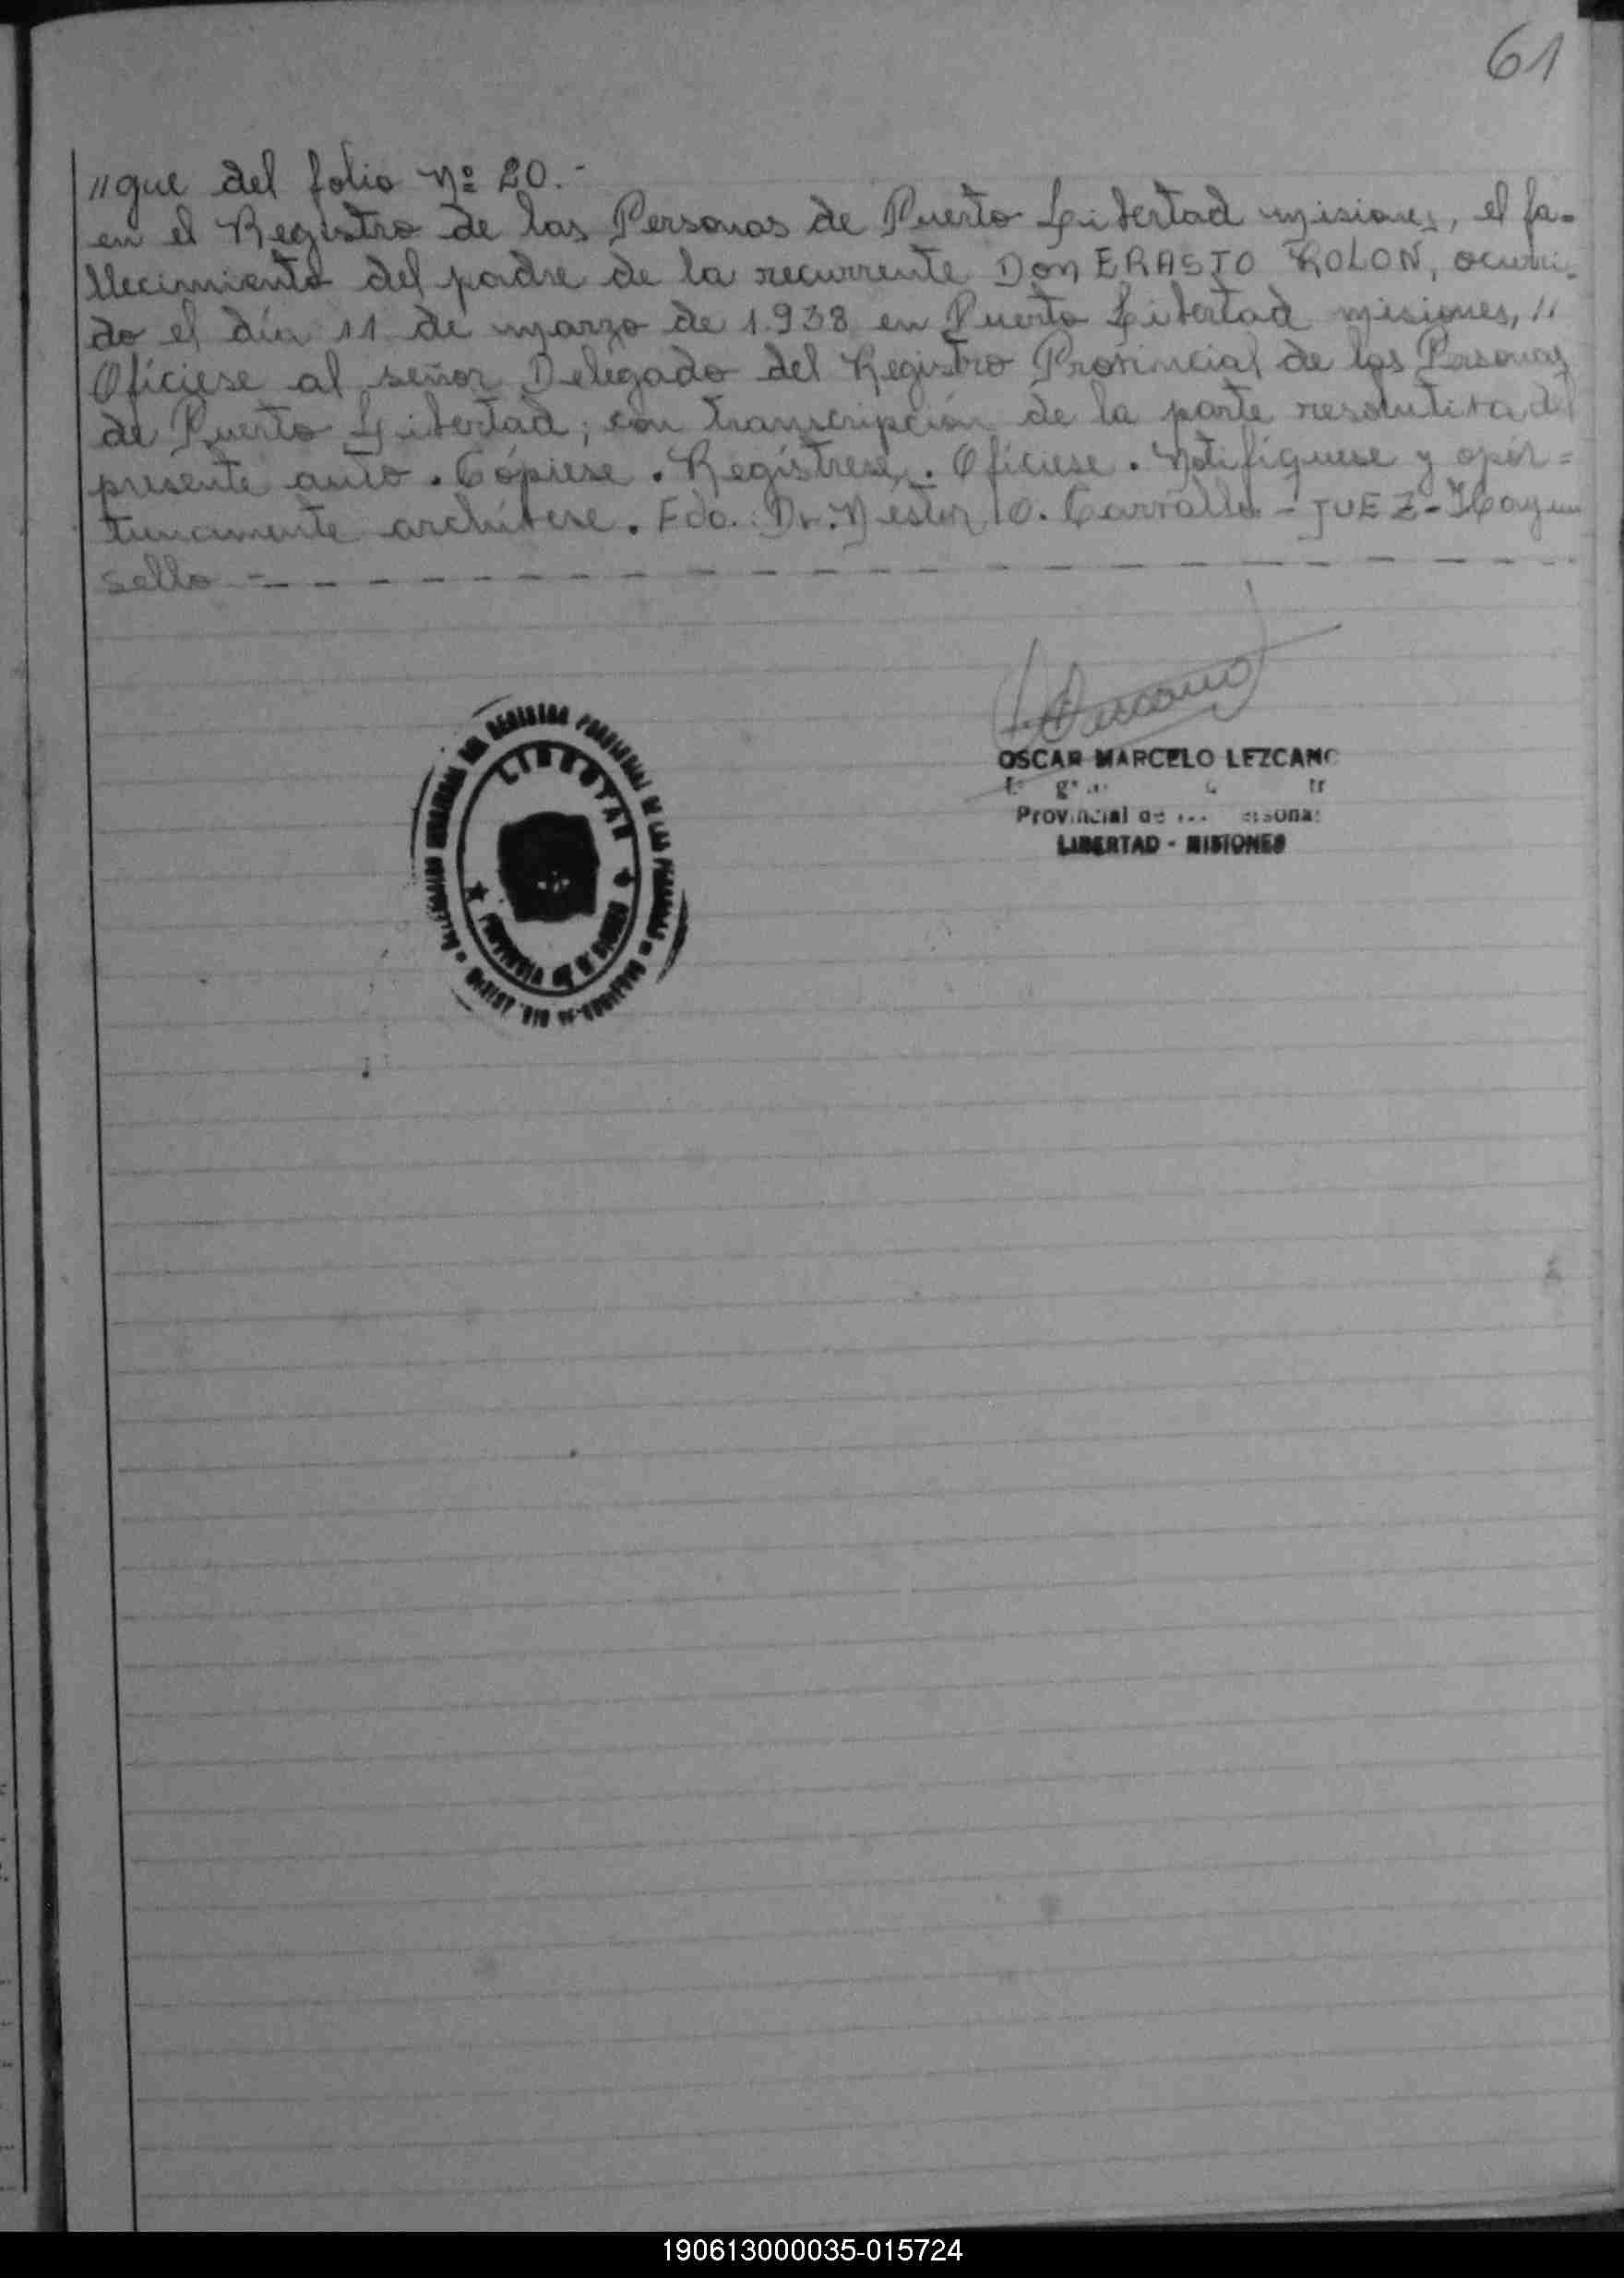 61
//gue del folio Nº 20.-
en el Registro de las Personas de Puerto Libertad misiones, el fa-
llecimiento del padre de la recurrente Don ERASTO ROLON, ocurri-
do el día 11 de marzo de 1.938 en Puerto Libertad misiones, //
Ofíciese al señor Delegado del Registro Provincial de las Personas
de Puerto Libertad, con transcripción de la parte resolutiva del
presente auto. Cópiese. Regístrese. Ofíciese. Notifíquese y opor=
tunamente archívese. Fdo.: Dr. Néstor O. - JUEZ- Hay un
sello -
LIBERTAD
OSCAR MARCELO LEZCANO
Provincial de
LIBERTAD - MISIONES
190613000035-015724